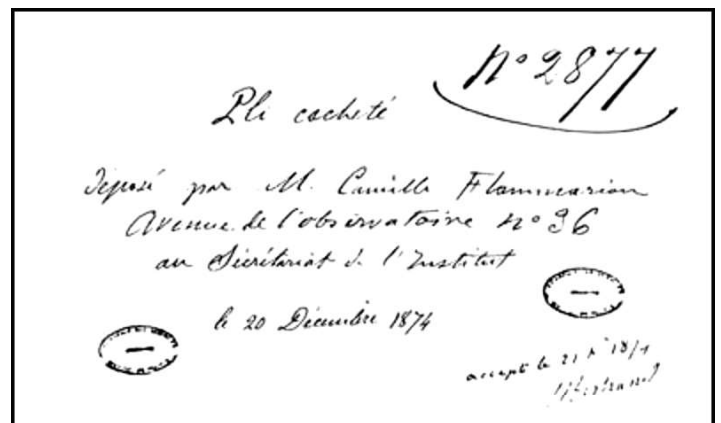 N° 2877
Pli cacheté
déposé par M. Camille Flammarion
Avenue de l'observatoire n° 36
au Secrétariat de l'Institut
le 20 Décembre 1874
accepté le 21 Xbre 1874
JBertrand